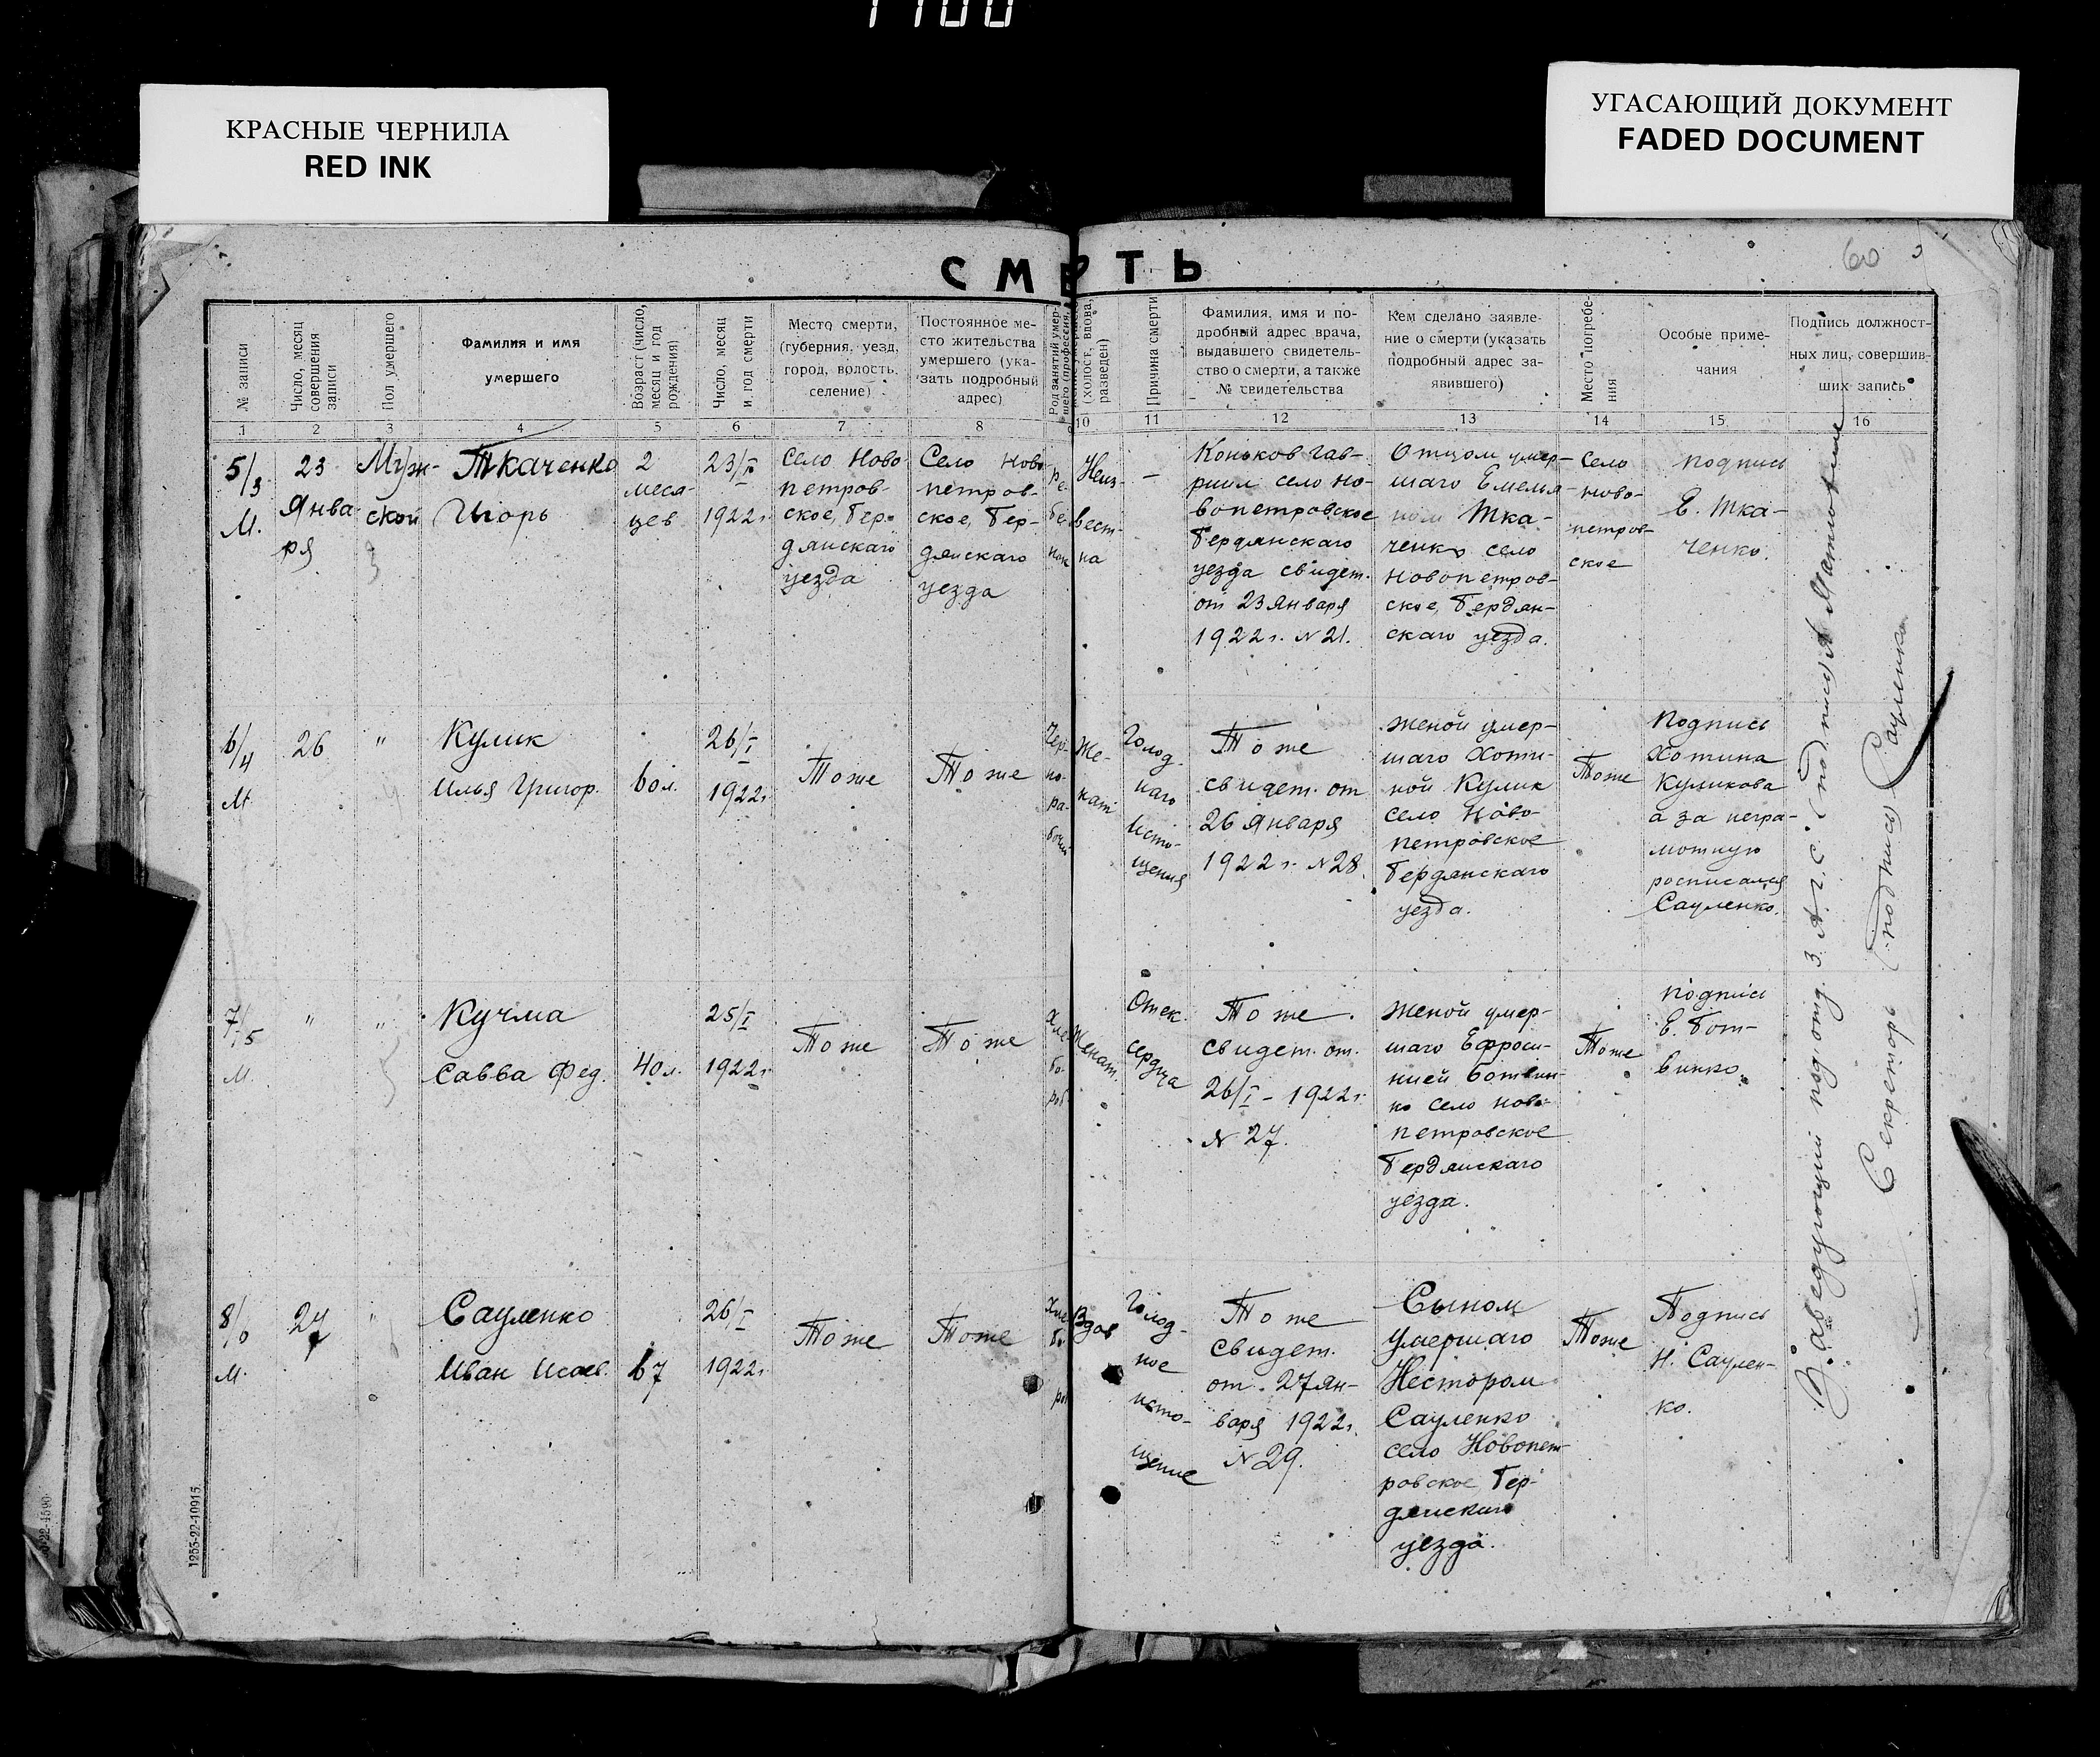 1100
КРАСНЫЕ ЧЕРНИЛА
RED INK
УГАСАЮЩИЙ ДОКУМЕНТ
FADED DOCUMENT
60
СМЕРТЬ
№ записи
Число, месяц
совершения
записи
Пол умершего
Фамилия и имя
умершего
Возраст (число,
месяц и год
рождения)
Число, месяц
и год смерти
Место смерти,
(губерния, уезд,
город, волость,
селение)
Постоянное ме-
сто жительства
умершего (ука-
зать подробный
адрес)
Род занятий умер-
шего (профессия,
(холост, вдова,
разведен)
Причина смерти
Фамилия, имя и по-
дробный адрес врача,
выдавшего свидетель-
ство о смерти, а также
№ свидетельства
Кем сделано заявле-
ние о смерти (указать
подробный адрес за-
явившего)
Место погребе-
ния
Особые приме-
чания
Подпись должност-
ных лиц, совершив-
ших запись
1 2 3 4 5 6 7 8 9 10 11 12 13 14 15 16
5/3
М.
23
Янва
ря
Муж-
ской
Ткаченко
Игорь
2
меся-
цев
23/I
1922г.
Село Ново
петров-
ское, Бер-
дянскаго
уезда
Село Ново
петров-
ское, Бер-
дянскаго
уезда
Ре-
бе-
нок
Неиз-
вест-
на
—
Коньков Гав-
риил село Но-
вопетровское
Бердянскаго
уезда свидет.
от 23 Января
1922г. N 21.
Отцом умер-
шаго Емелья-
ном Тка-
ченко село
Новопетров-
ское, Бердян-
скаго уезда.
Село
Ново-
петров-
ское
Подпись
Е. Тка-
ченко.
6/4
М.
26
"
Кулик
Илья Григор.
60л.
26/I
1922г.
Тоже
Тоже
Чер-
но-
ра-
бочий
Же-
нат
Голод-
наго
исто-
щения
Тоже
свидет. от
26 Января
1922г. N 28.
Женой умер-
шаго Хоти-
ной Кулик
село Ново-
петровское
Бердянскаго
уезда.
Тоже
Подпись
Хотина
Куликова
а за негра-
мотную
росписался
Сауленко.
7/5
М.
"
"
Кучма
Савва Фед.
40л.
25/I
1922г.
Тоже
Тоже
Хле-
бо-
роб
Женат.
Отек.
сердца
Тоже.
свидет. от.
26/I - 1922г.
N 27.
Женой умер-
шаго Ефроси-
нией Ботвин-
ко село Ново-
петровское
Бердянскаго
уезда.
Тоже
Подпись
Е. Бот-
винко.
8/6
М.
27
"
Сауленко
Иван Исаев.
67
26/I
1922г.
Тоже
Тоже
Хле-
бо-
роб
Вдов
Голод-
ное
исто-
щение
Тоже
свидет.
от. 27 Ян-
варя 1922г.
N 29.
Сыном
умершаго
Нестором
Сауленко
село Новопет-
ровское Бер-
дянскаго
уезда.
Тоже
Подпись
Н. Саулен-
ко.
Заведующий под отд. З.А.Г.С. (подпись)
Секретарь (подпись) Сауленко
1255-22-10915.